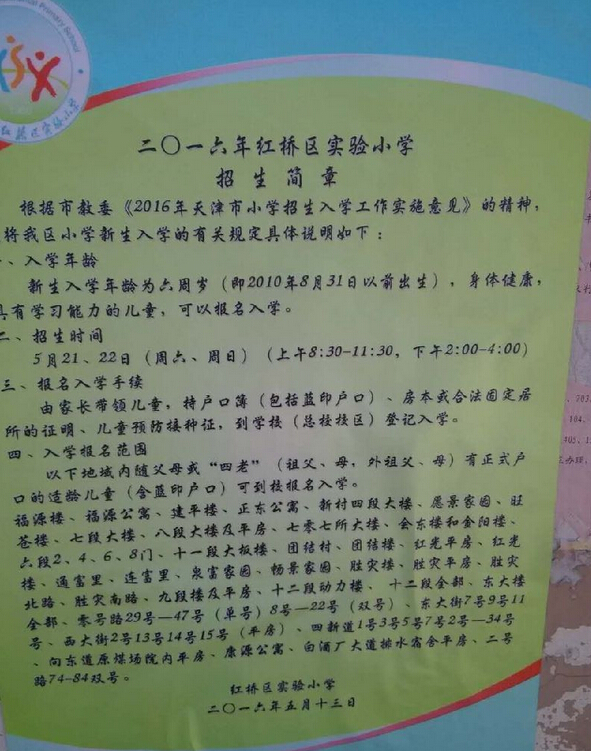 Primary School
红桥区实验小学
二〇一六年红桥区实验小学
招生简章
根据市教委《2016年天津市小学招生入学工作实施意见》的精神,
将我区小学新生入学的有关规定具体说明如下：
一、入学年龄
新生入学年龄为六周岁（即2010年8月31日以前出生）, 身体健康,
具有学习能力的儿童, 可以报名入学。
二、招生时间
5月21、22日（周六、周日）（上午8:30-11:30, 下午2:00-4:00）
三、报名入学手续
由家长带领儿童, 持户口簿（包括蓝印户口）、房本或合法固定居
所的证明、儿童预防接种证, 到学校（总校校区）登记入学。
四、入学报名范围
以下地域内随父母或“四老”（祖父、母, 外祖父、母）有正式户
口的适龄儿童（含蓝印户口）可到校报名入学。
福源楼、福源公寓、建平楼、正东公寓、新村四段大楼、愿景家园、旺
苍楼、七段大楼、八段大楼及平房、七零七所大楼、会东楼和金阳楼、
六段2、4、6、8门、十一段大板楼、团结村、团结楼、红光平房、红光
楼、通富里、连富里、泉富家园、畅景家园、胜灾楼、胜灾平房、胜灾
北路、胜灾南路、九段楼及平房、十二段动力楼、十二段全部、东大楼
全部、零号路29号—47号（单号）8号—22号（双号）、东大街7号9号11
号、西大街2号13号14号15号（平房）、四新道1号3号5号7号2号—34号
、向东道原煤场院内平房、康源公寓、白酒厂大道排水宿舍平房、二号
路74-84双号。
红桥区实验小学
二〇一六年五月十三日